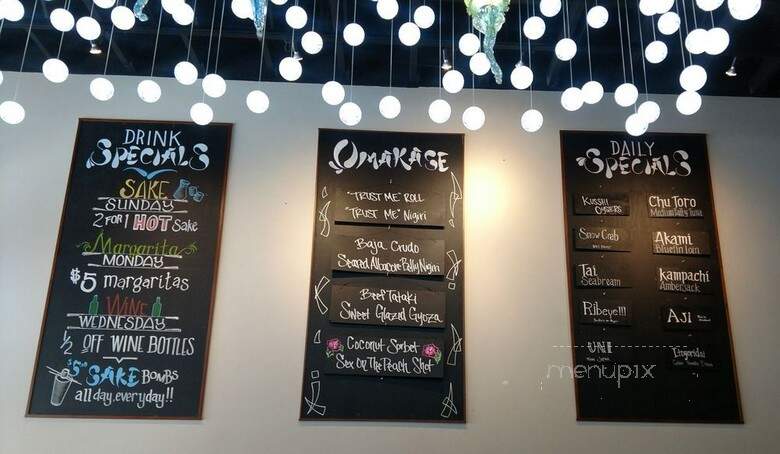 DRINK
SPECIALS
SAKE
SUNDAY
2 FOR 1 HOT Sake
Margarita
MONDAY
$5 margaritas
WINE
WEDNESDAY
1/2 OFF WINE BOTTLES
$5 SAKE BOMBS
all day, everyday!!
OMAKASE
"TRUST ME" ROLL
"TRUST ME" Nigiri
Baja Crudo
Seared Albacore Belly Nigiri
Beef Tataki
Sweet Glazed Gyoza
Coconut Sorbet
Sex On The Peach Shot
DAILY
SPECIALS
KUSSHI
OYSTERS
Snow Crab
Tai
Seabream
Ribeye!!!
UNI
Chu Toro
Medium Fatty Tuna
Akami
Bluefin Loin
Kampachi
Amberjack
AJI
menupix